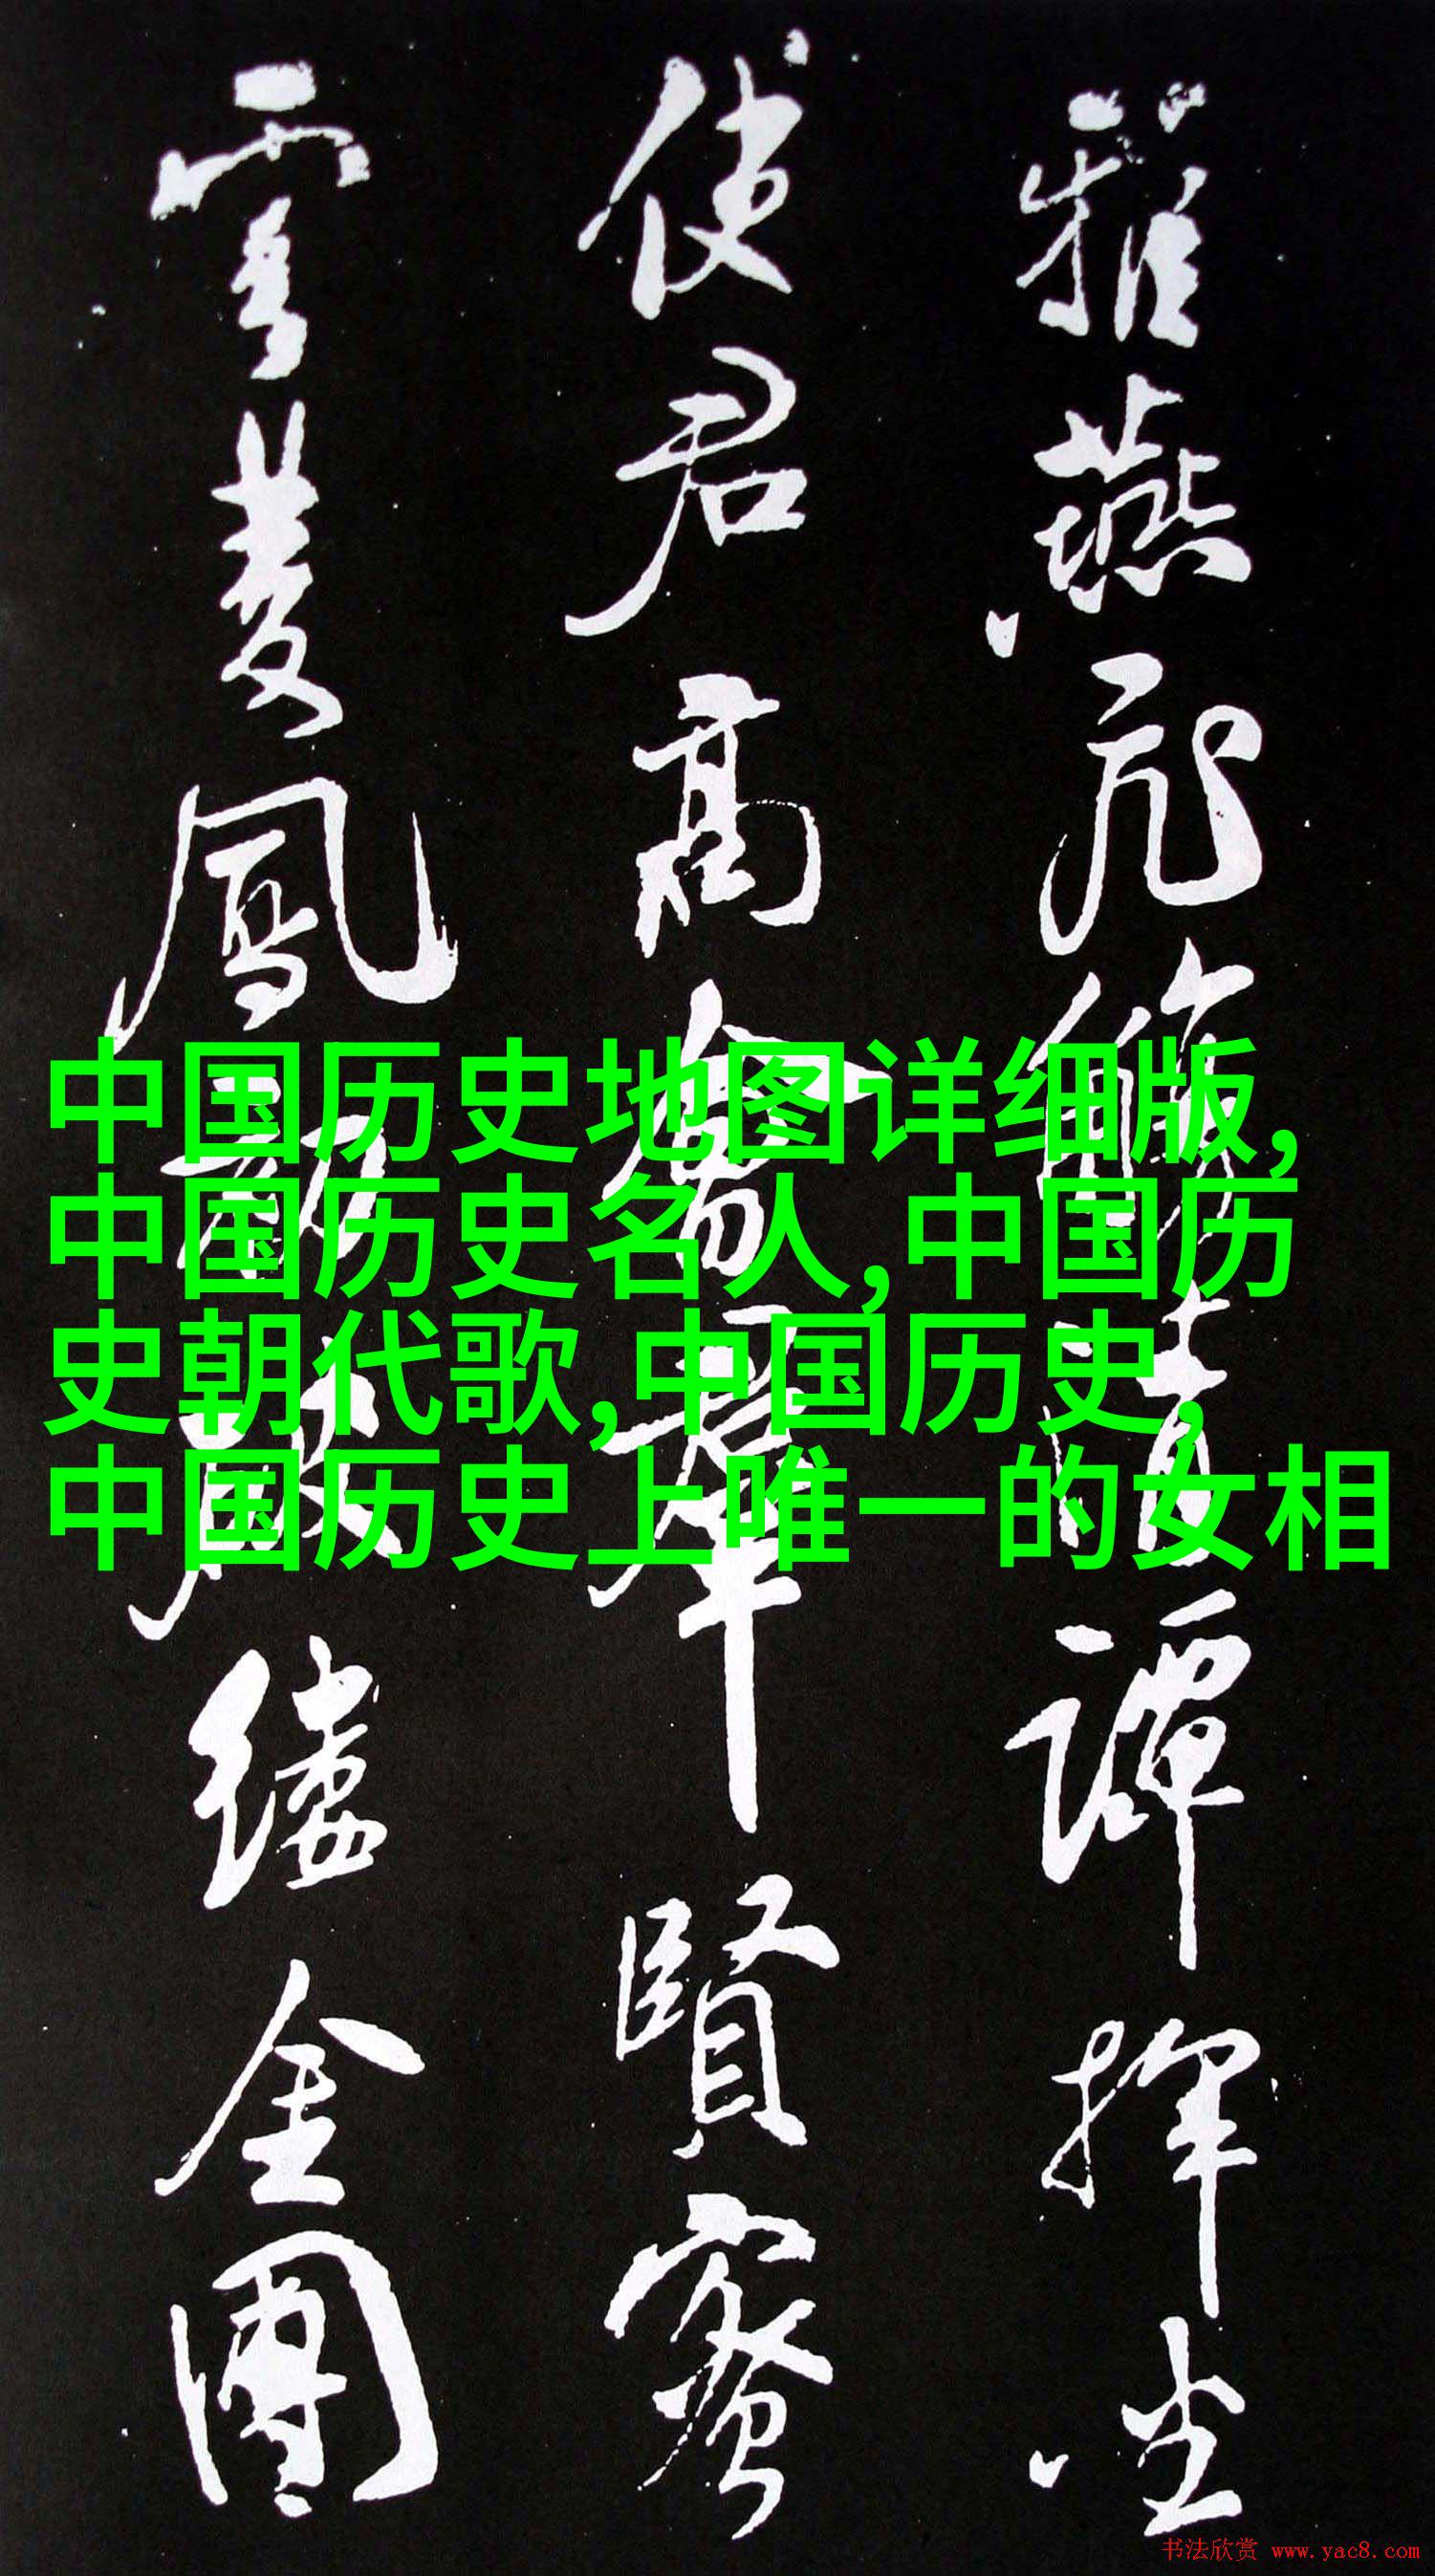 雅燕飛觴清譚揮坐
使君高會群賢密
雲雙鳳初破縷金團
中国历史地图详细版,
中国历史名人,中国历
史朝代歌,中国历史,
中国历史上唯一的女相
书法欣赏 www.yac8.com